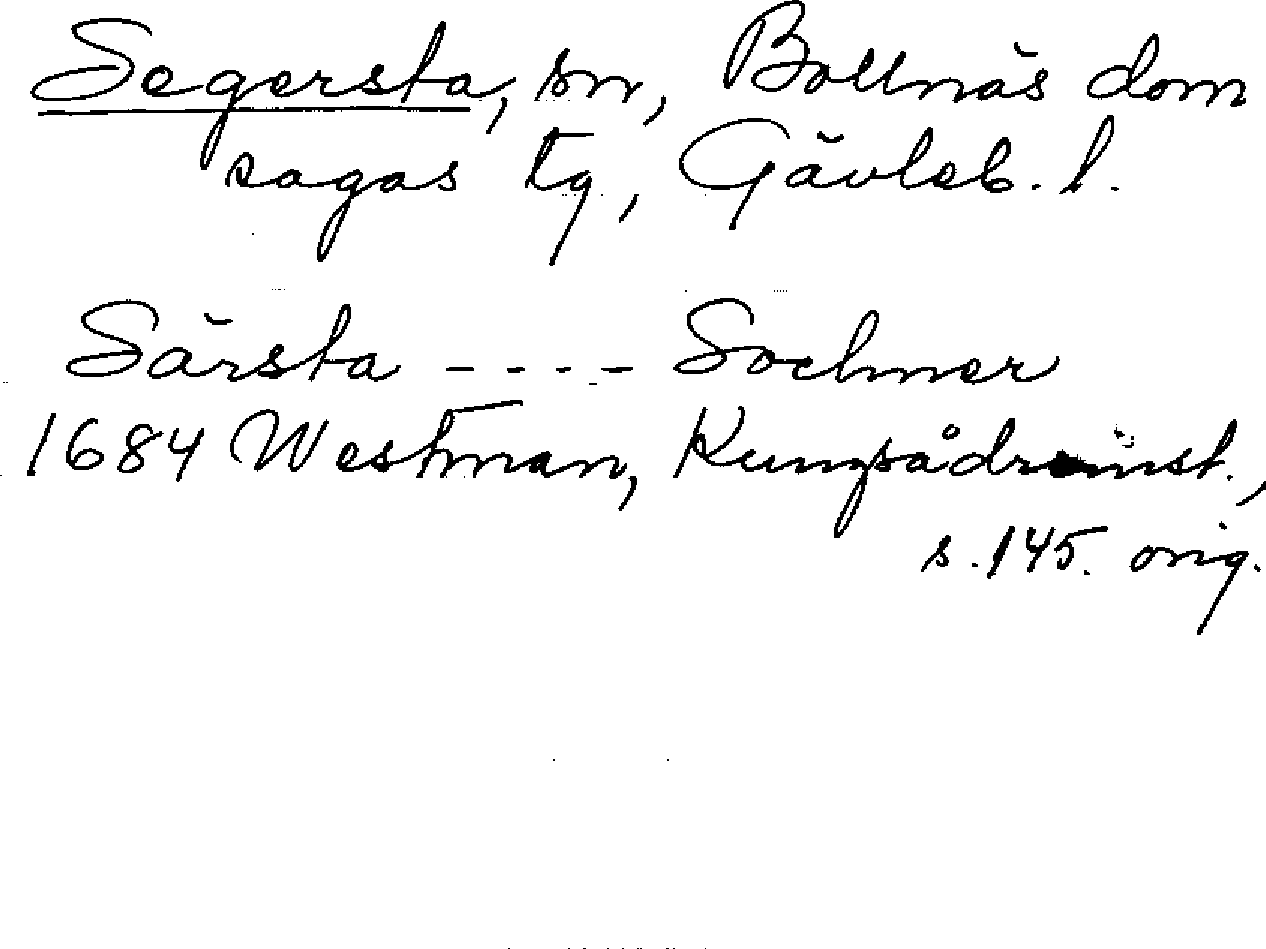 Segersta, sn, Bollnäs dom
sagas tg, Gävleb. l.
Särsta - - - - Sochner
1684 Westman, Kungsådreinst.,
s. 145. orig.